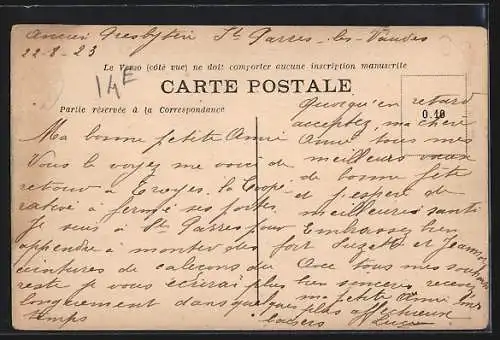 Ancien Presbytère St Parres-les-Vaudes
22-8-23
14E
Le Verso (côté vue) ne doit comporter aucune inscription manuscrite
CARTE POSTALE
Partie réservée à la Correspondance
0.10
Ma bonne petite Amie
Vous le voyez me voici de
retour à Troyes. la Coopé
rative a fermé ses portes.
Je suis à St Parres pour
apprendre à monter des
ceintures de caleçons du
reste je vous écrirai plus
longuement dans quelque
temps
Quoiqu'en retard
acceptez, ma chère
Amie tous mes
meilleurs vœux
de bonne fête
et j'espère de
meilleure santé
Embrassez bien
fort Suzette et Jeannot
Avec tous mes souhaits
bien sincères recevez
ma petite Amie les
plus affectueux
baisers Lucie